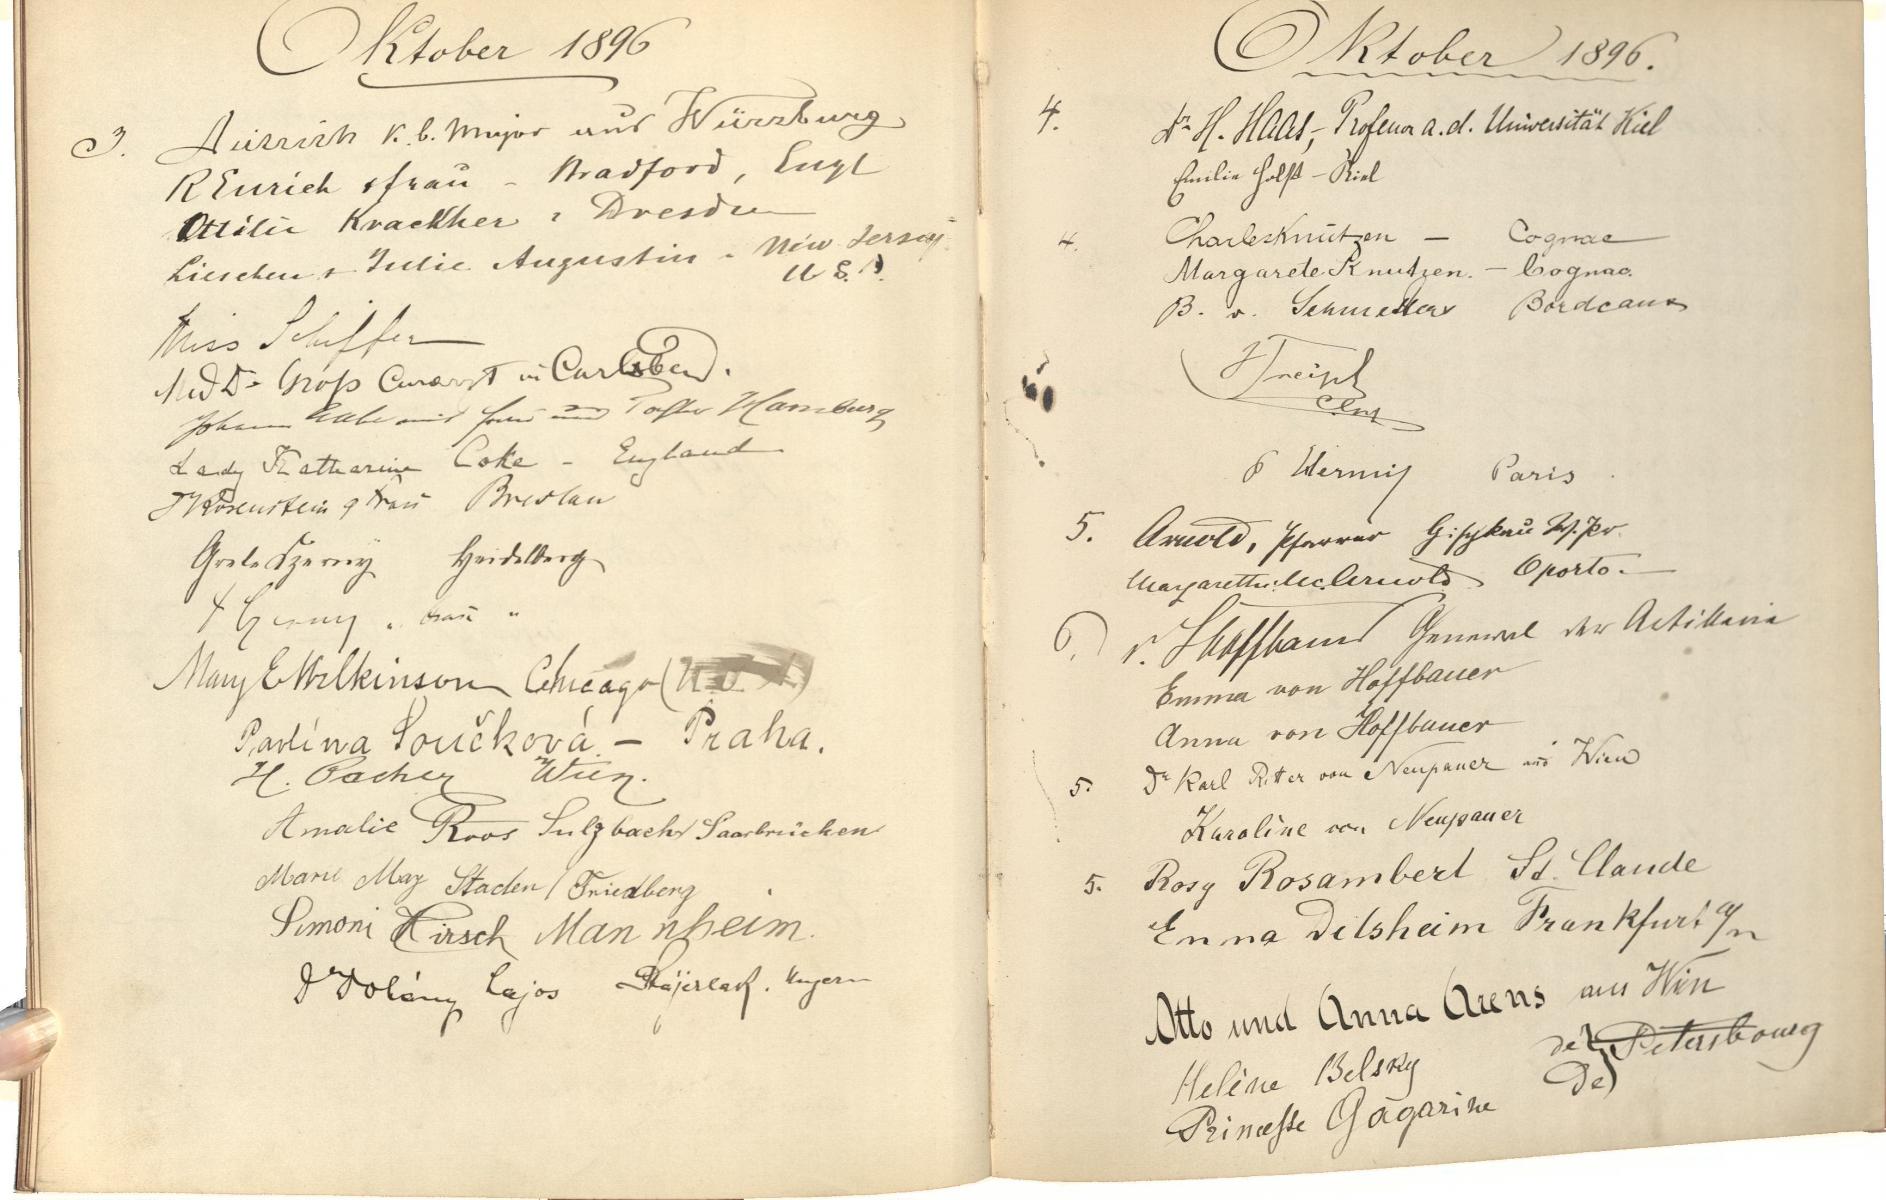 Oktober 1896
3. k. b. Major aus Würzburg
R Eurich & frau - Bradford, Engl
Ottilie Krackher, Dresden
Lieschen & Julie Augustin - New Jersey
U S A.
Miss Schiffer
Med Dr Groß Curarzt in Carlsbad.
Johann mit frau und Tochter Hamburg
Lady Katharine Coke - England
Rosenstein & Frau Breslau
Grete Czerny Heidelberg
Czerny " Frau "
Mary E Wilkinson Chicago (U S A)
Pavlína Součková - Praha.
H. Pacher Wien.
Amalie Roos Sulzbach/Saarbrücken
Marie May Staden/Friedberg
Simoni Hirsch Mannheim.
Dr Dolány Lajos Stájerlak. Ungarn
Oktober 1896.
4. Dr H. Haas, Professor a. d. Universität Kiel
Emilie Holst - Kiel
4. Charles Knutzen - Cognac
Margarete Knutzen. - Cognac.
B. v. Bordeaux
Paris
5. Arnold, Pfarrer W. Pr.
Margarethe Arnold Oporto.
6. v. Hoffbauer General der Artillerie
Emma von Hoffbauer
Anna von Hoffbauer
5. Dr Karl Ritter von Neupauer aus Wien
Karoline von Neupauer
5. Rosy Rosambert St. Claude
Emma Dilsheim Frankfurt a/m
Otto und Anna Arens aus Wien
Helène Belsky de Petersbourg
Princesse Gagarine de